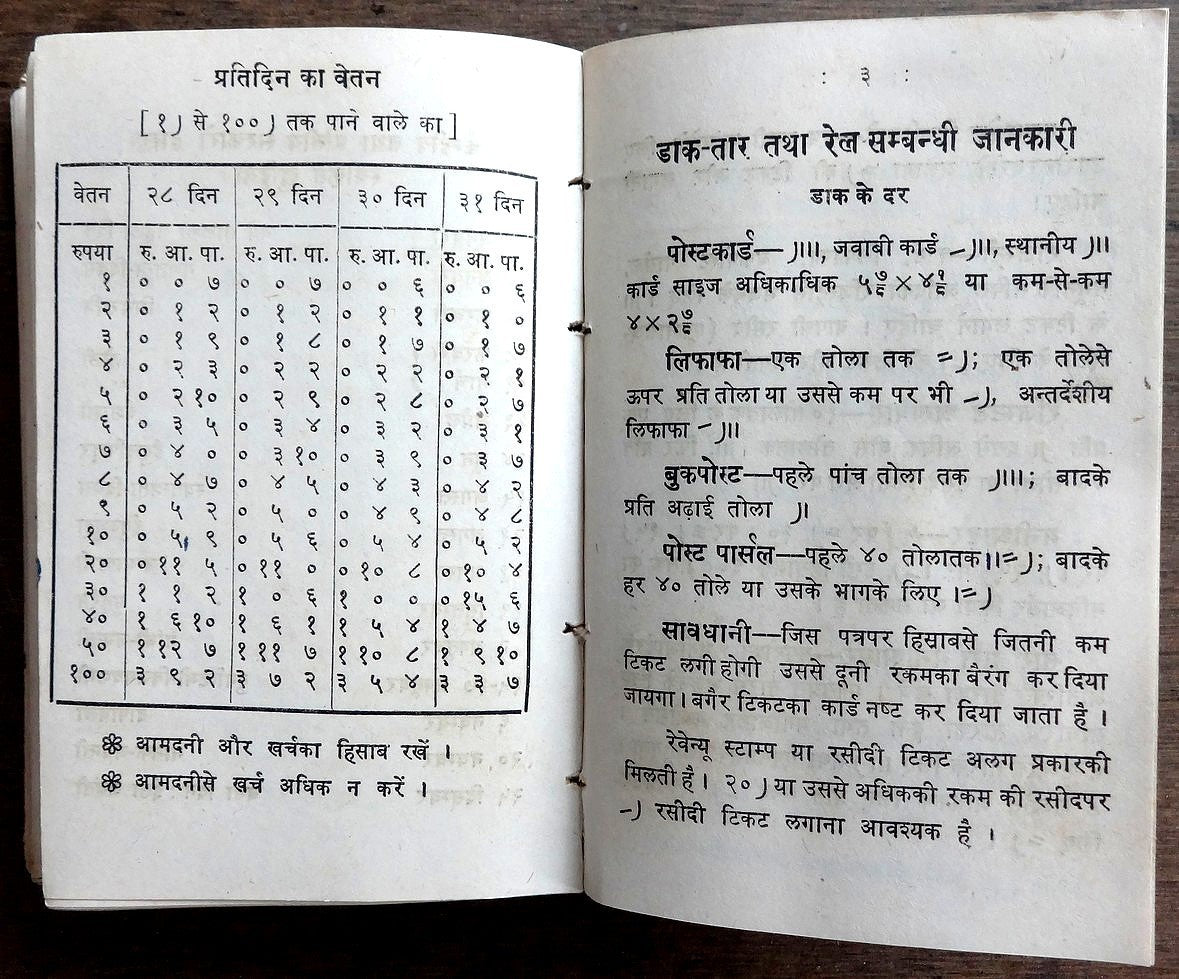 प्रतिदिन का वेतन
[ १) से १००) तक पाने वाले का ]
वेतन २८ दिन २९ दिन ३० दिन ३१ दिन
रुपया रु. आ. पा. रु. आ. पा. रु. आ. पा. रु. आ. पा.
१ ० ० ७ ० ० ७ ० ० ६ ० ० ६
२ ० १ २ ० १ २ ० १ १ ० १ ०
३ ० १ ९ ० १ ८ ० १ ७ ० १ ७
४ ० २ ३ ० २ २ ० २ २ ० २ १
५ ० २ १० ० २ ९ ० २ ८ ० २ ७
६ ० ३ ५ ० ३ ४ ० ३ २ ० ३ १
७ ० ४ ० ० ३ १० ० ३ ९ ० ३ ७
८ ० ४ ७ ० ४ ५ ० ४ ३ ० ४ २
९ ० ५ २ ० ५ ० ० ४ ९ ० ४ ८
१० ० ५ ९ ० ५ ६ ० ५ ४ ० ५ २
२० ० ११ ५ ० ११ ० ० १० ८ ० १० ४
३० १ १ २ १ ० ६ १ ० ० ० १५ ६
४० १ ६ १० १ ६ १ १ ५ ४ १ ४ ७
५० १ १२ ७ १ ११ ७ १ १० ८ १ ९ १०
१०० ३ ९ २ ३ ७ २ ३ ५ ४ ३ ३ ७
आमदनी और खर्चका हिसाब रखें ।
आमदनीसे खर्च अधिक न करें ।
: ३ :
डाक-तार तथा रेल सम्बन्धी जानकारी
डाक के दर
पोस्टकार्ड—)।।।, जवाबी कार्ड -)।।, स्थानीय )।।
कार्ड साइज अधिकाधिक ५७/८ × ४१/८ या कम-से-कम
४×२७/८
लिफाफा—एक तोला तक =); एक तोलेसे
ऊपर प्रति तोला या उससे कम पर भी -), अन्तर्देशीय
लिफाफा -)।।
बुकपोस्ट—पहले पांच तोला तक )।।।; बादके
प्रति अढ़ाई तोला )।
पोस्ट पार्सल—पहले ४० तोलातक ।।=); बादके
हर ४० तोले या उसके भागके लिए ।=)
सावधानी—जिस पत्रपर हिसाबसे जितनी कम
टिकट लगी होगी उससे दूनी रकमका बैरंग कर दिया
जायगा। बगैर टिकटका कार्ड नष्ट कर दिया जाता है ।
रेवेन्यू स्टाम्प या रसीदी टिकट अलग प्रकारकी
मिलती है। २०) या उससे अधिककी रकम की रसीदपर
-) रसीदी टिकट लगाना आवश्यक है ।